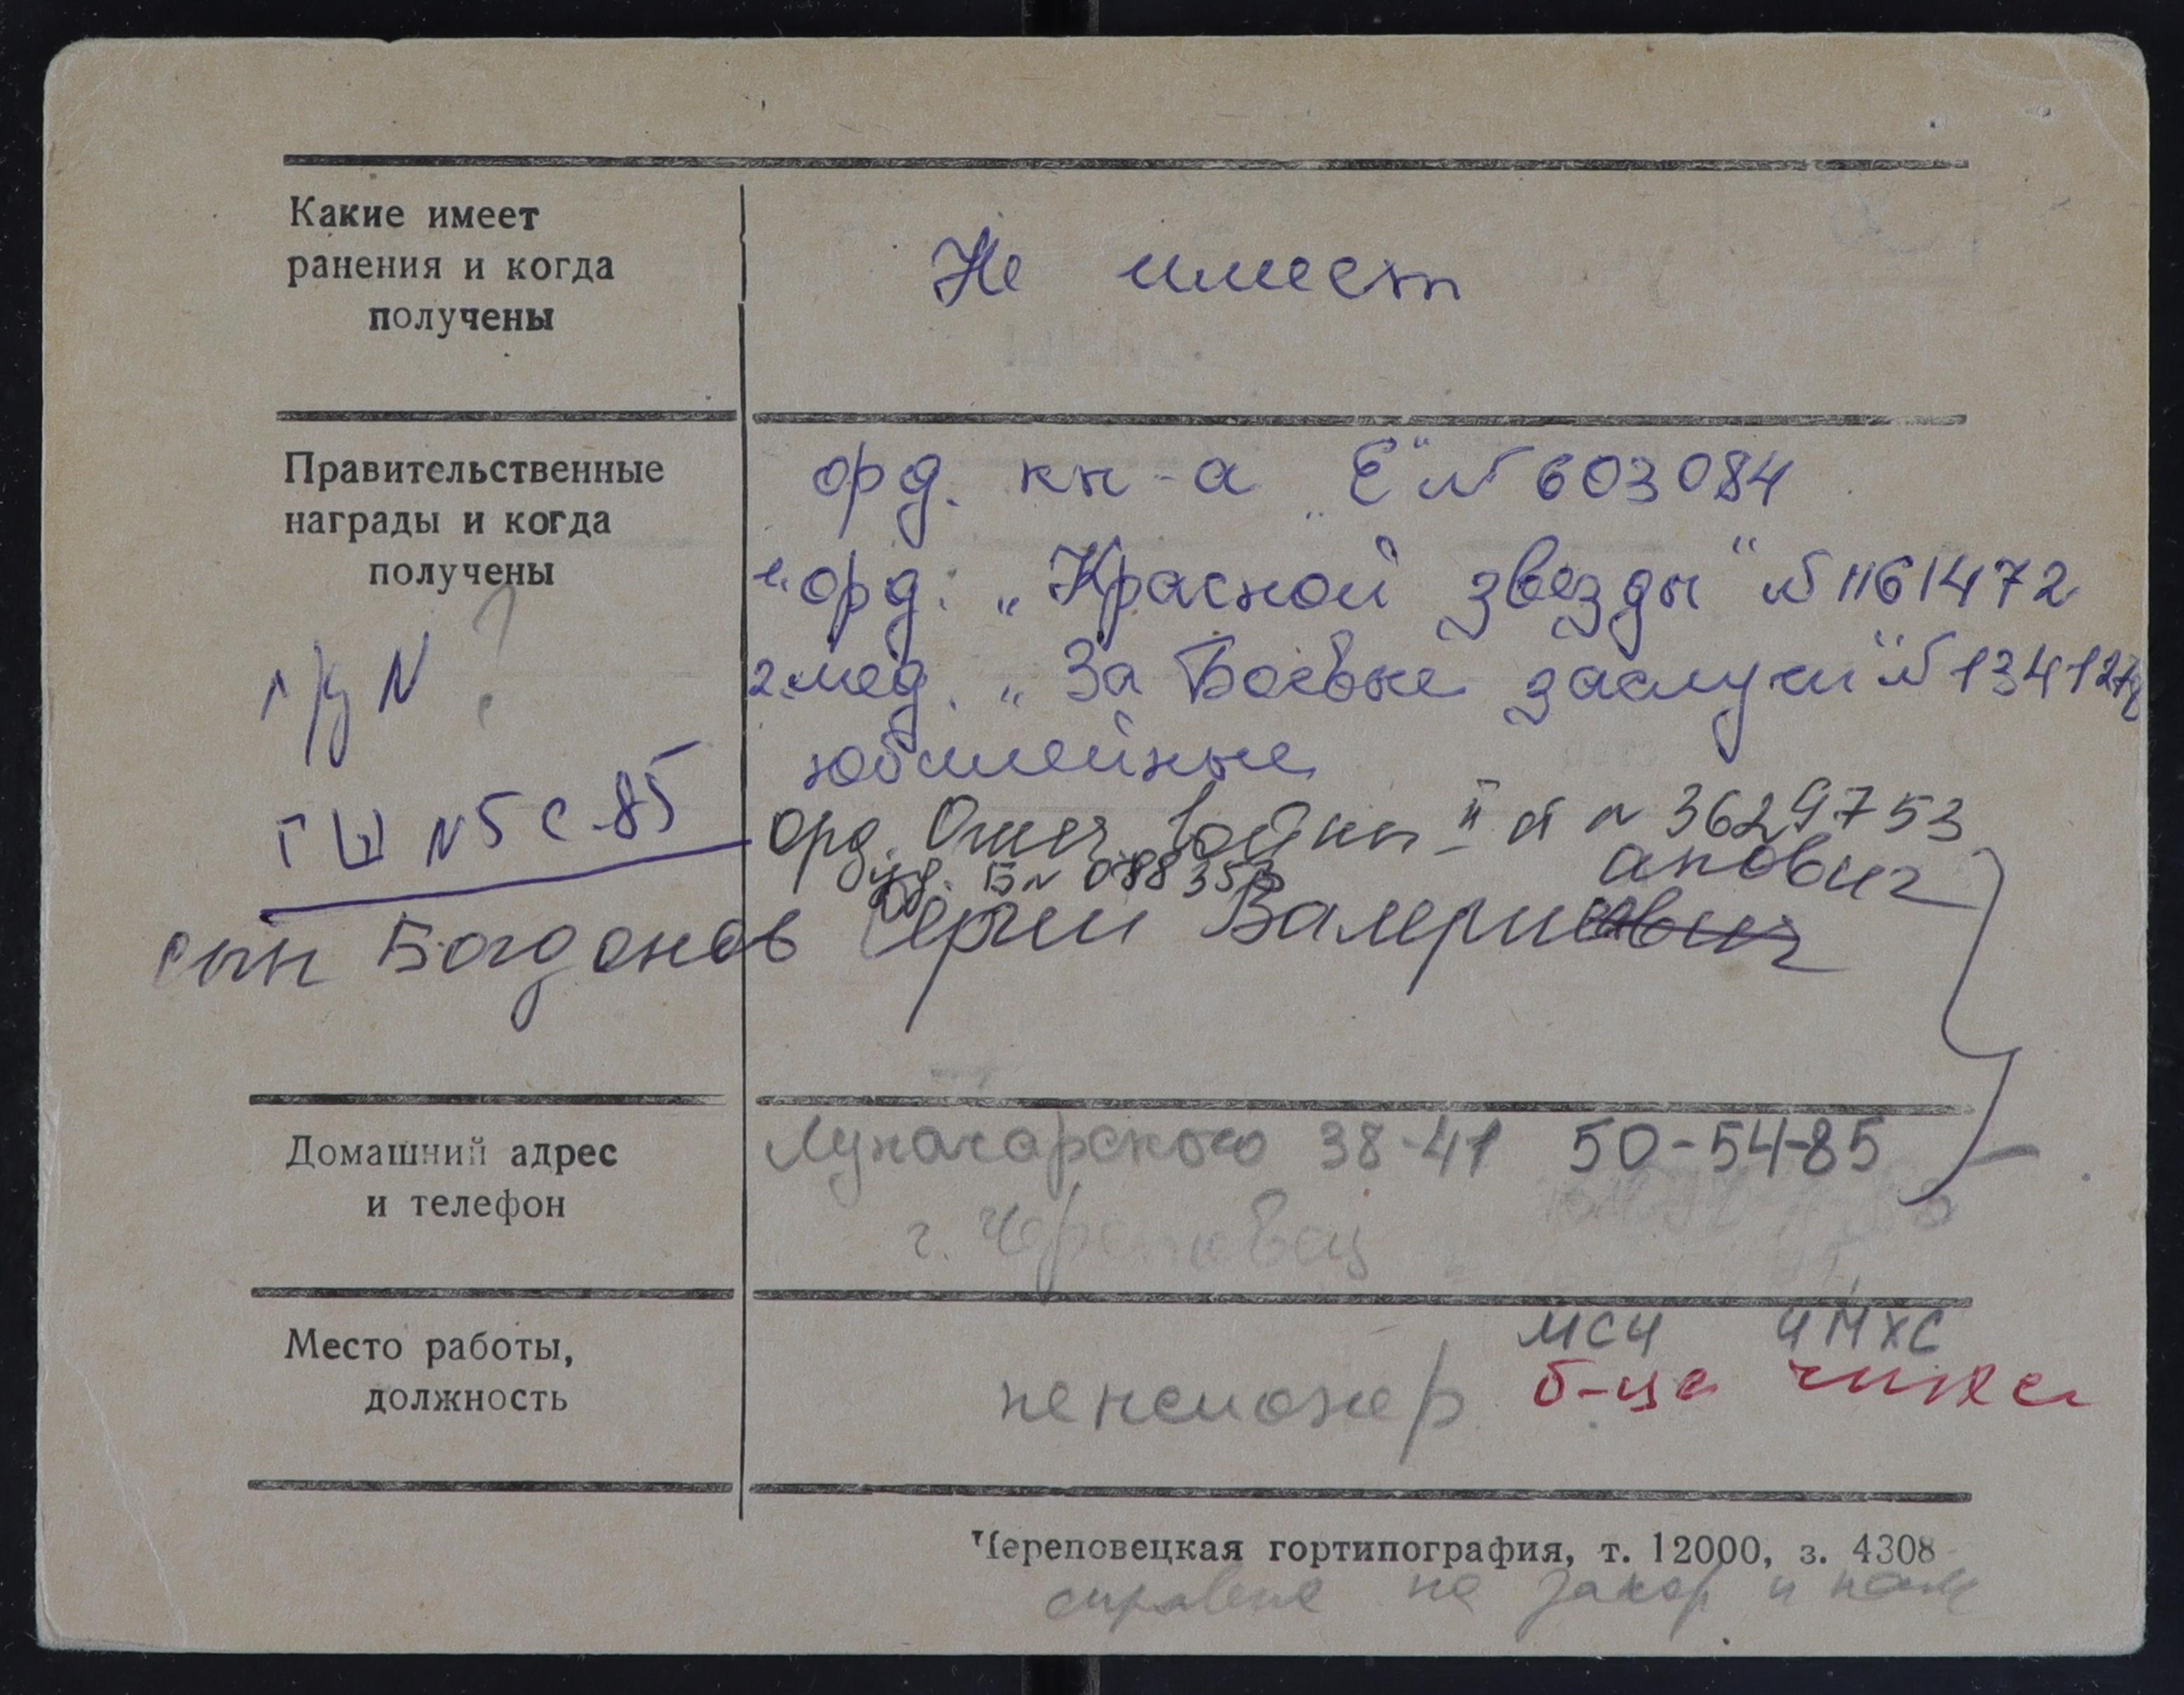 Какие имеет
ранения и когда
получены
Не имеет
Правительственные
награды и когда
получены
орд. кн-а „Е" № 603084
1. орд. „Красной звезды" № 1161472
2. мед. „За Боевые заслуги" №
юбилейные
г/р N ?
N 5 с 85
орд. Отеч. войны II ст N 3629753
Б N 088353
ановиг
сын Богданов Сергей Валериевич
Домашний адрес
и телефон
Луначарского 38-41 50-54-85
г. Череповец
Место работы,
должность
МСЧ ЧМХС
пенсионер б-ца чмхс
Череповецкая гортипография, т. 12000, з. 4308
справка на захор и пам